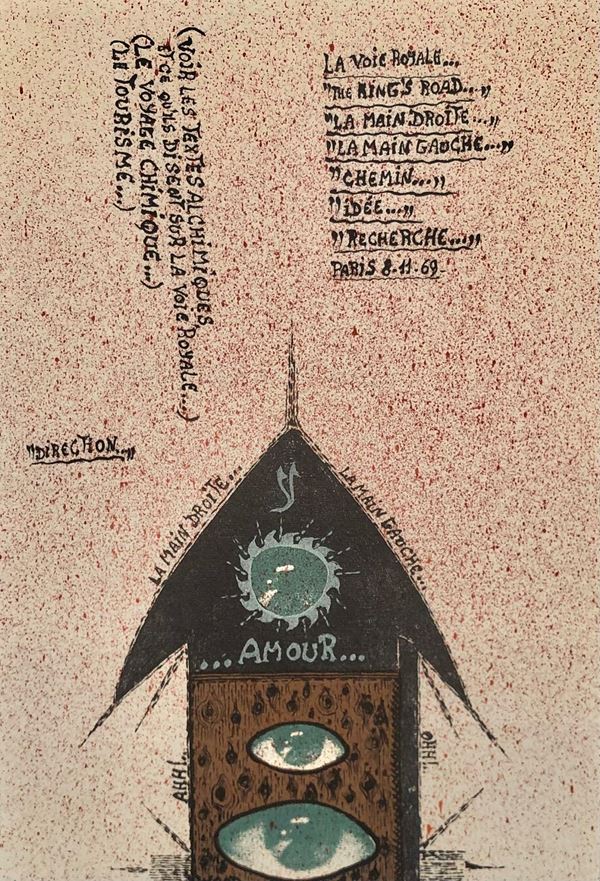 (VOIR LES TEXTES ALCHIMIQUES
ET CE QU'ILS DISENT SUR LA VOIE ROYALE...)
(LE VOYAGE CHIMIQUE...)
(LE TOURISME...)
LA VOIE ROYALE...
"THE KING'S ROAD..."
"LA MAIN DROITE..."
"LA MAIN GAUCHE..."
"CHEMIN..."
"IDÉE..."
"RECHERCHE..."
PARIS 8.11.69.
"DIRECTION..."
LA MAIN DROITE...
LA MAIN GAUCHE...
...AMOUR...
AHH!
OHH!